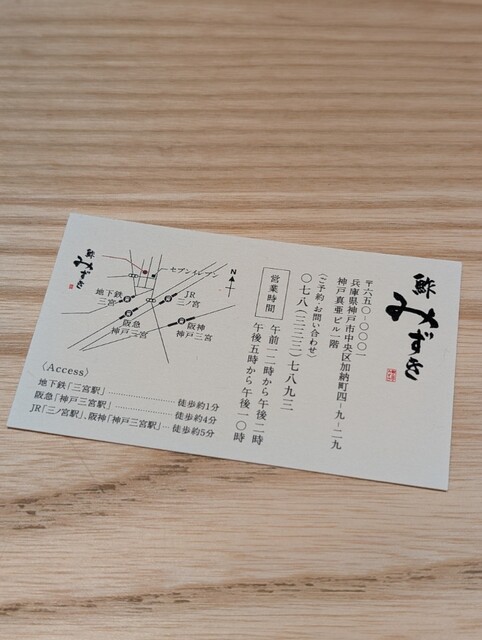 鮓 みずき
〒六五〇-〇〇〇一
兵庫県神戸市中央区加納町四-九-二九
神戸真亜ビル一階
〈ご予約・お問い合わせ〉
〇七八(二三三)七八九三
営業時間
午前一二時から午後二時
午後五時から午後一〇時
鮓 みずき
セブンイレブン
N
地下鉄
三宮
JR
三ノ宮
阪急
神戸三宮
阪神
神戸三宮
〈Access〉
地下鉄「三宮駅」……………………徒歩約1分
阪急「神戸三宮駅」…………………徒歩約4分
JR「三ノ宮駅」、阪神「神戸三宮駅」…徒歩約5分